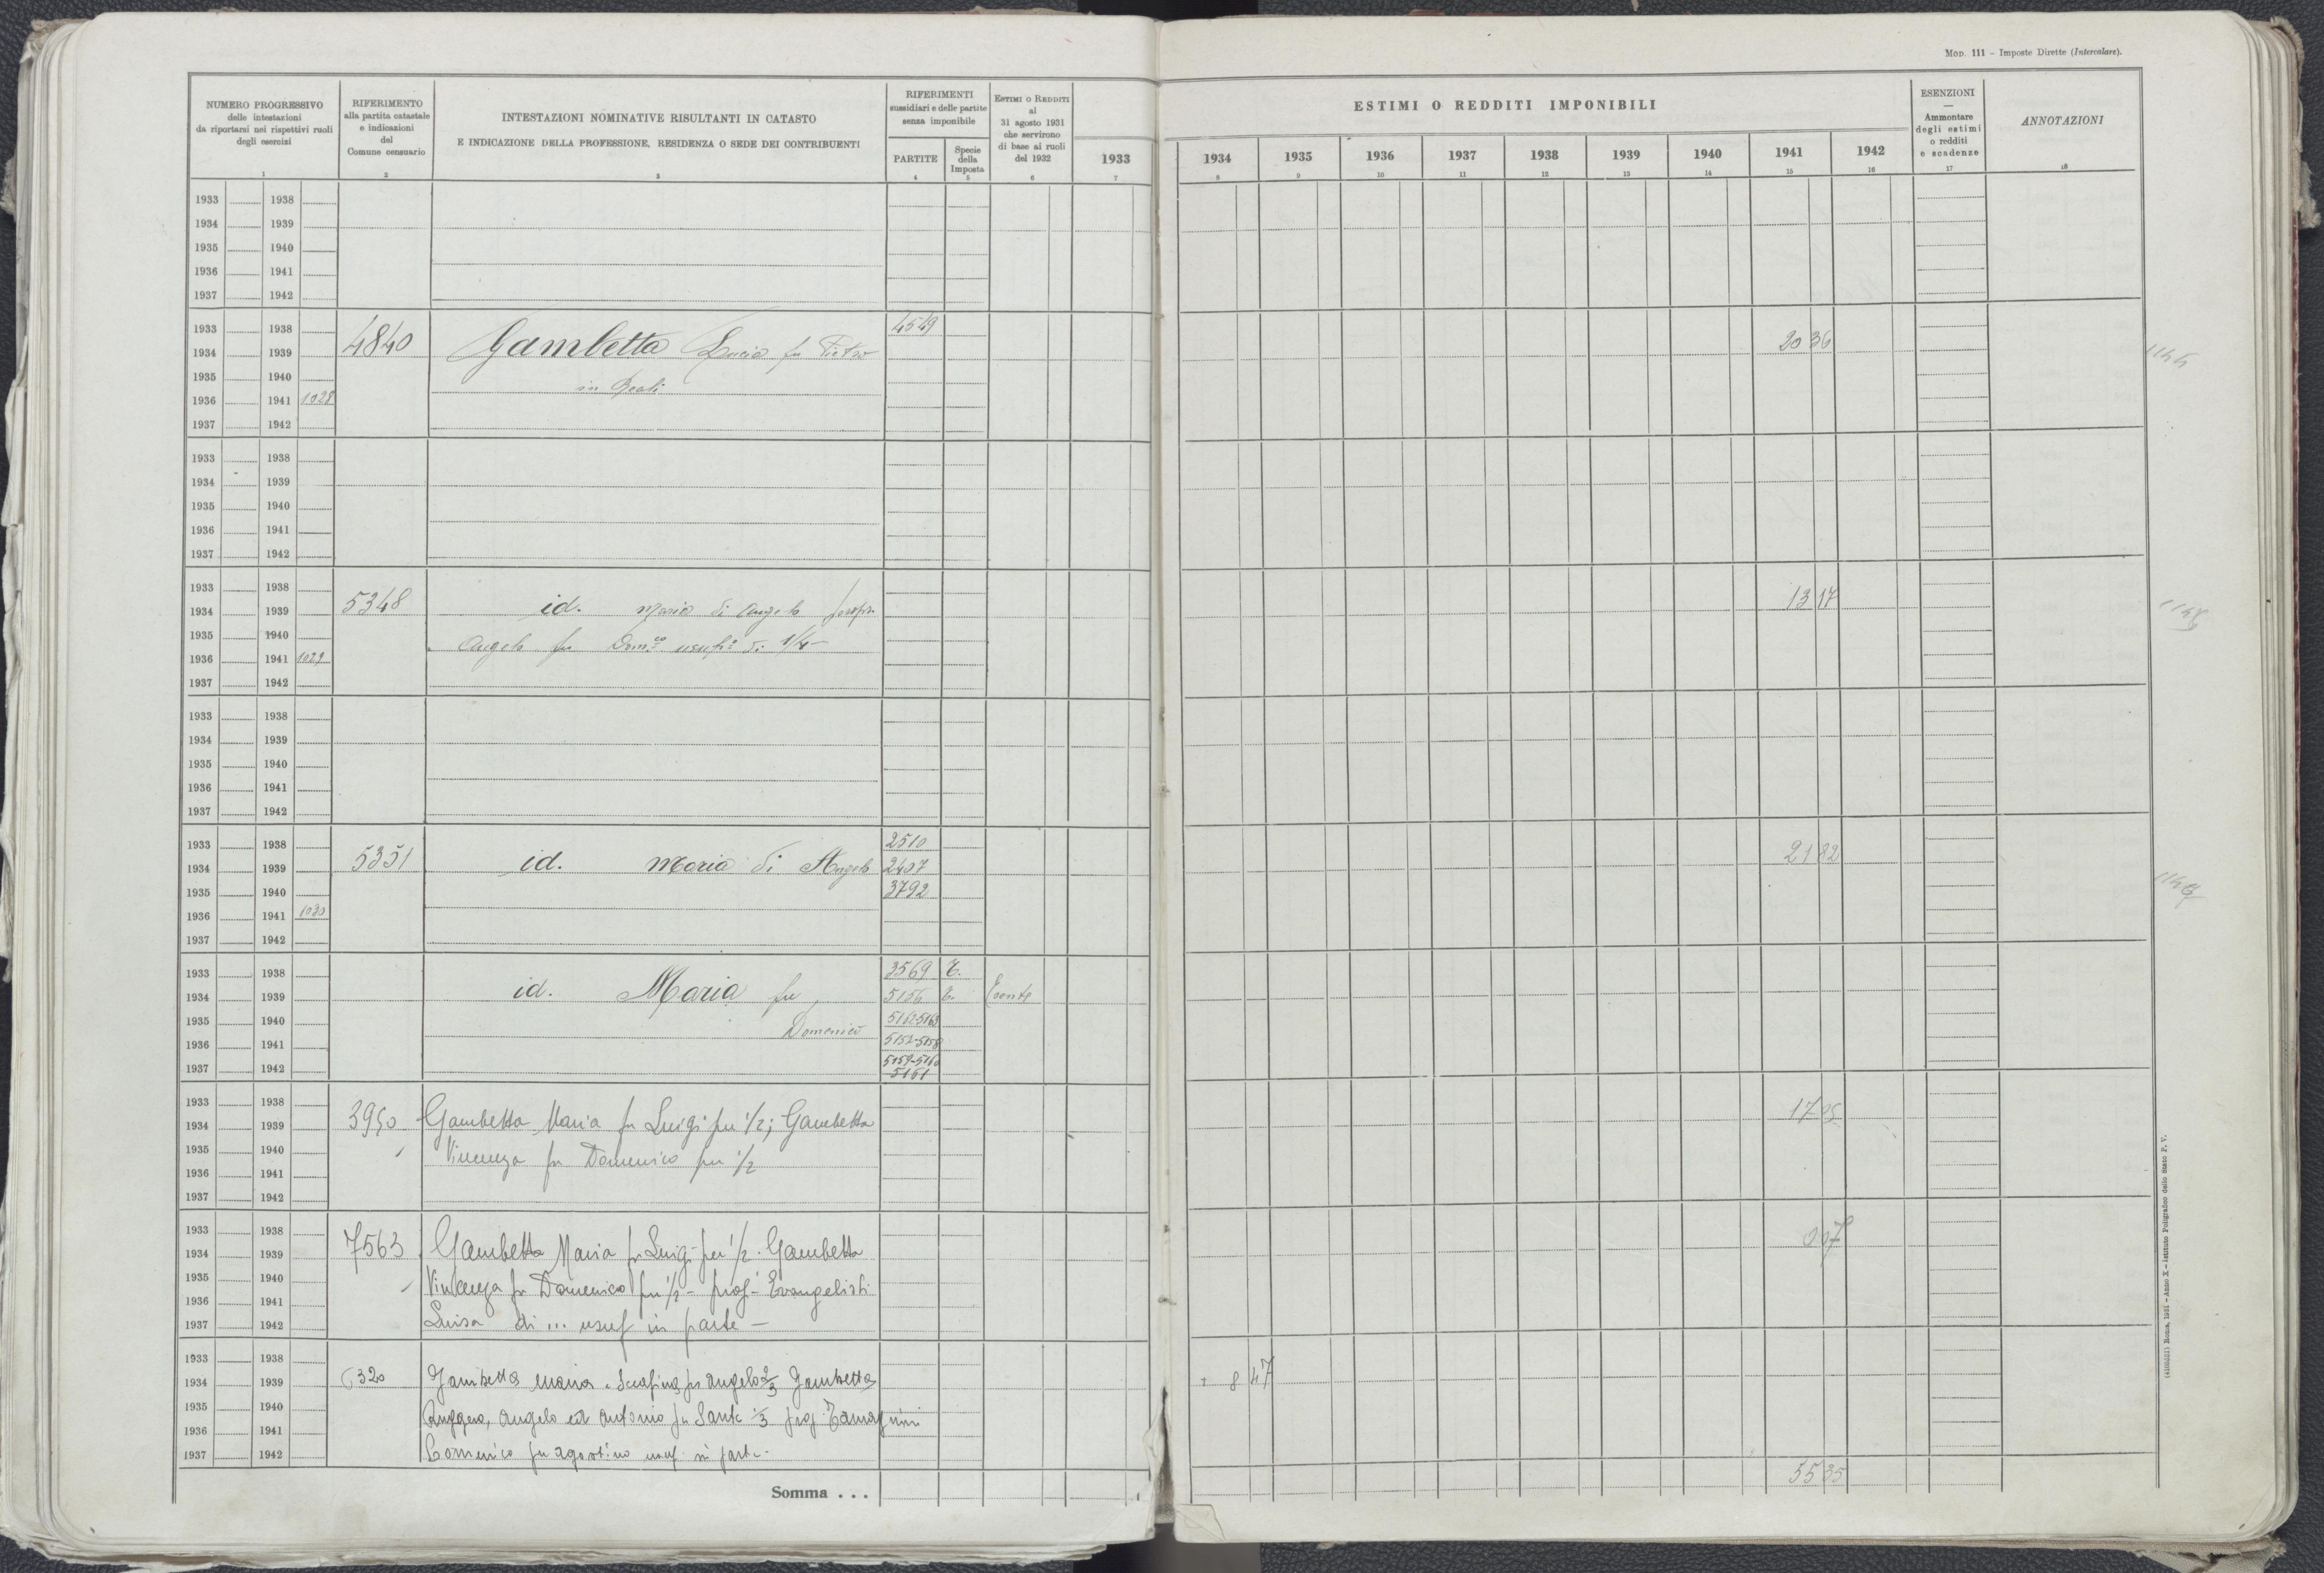 Mod. 111 - Imposte Dirette (Intercalare).
NUMERO PROGRESSIVO
delle intestazioni
da riportarsi nei rispettivi ruoli
degli esercizi
1
RIFERIMENTO
alla partita catastale
e indicazioni
del
Comune censuario
2
INTESTAZIONI NOMINATIVE RISULTANTI IN CATASTO
E INDICAZIONE DELLA PROFESSIONE, RESIDENZA O SEDE DEI CONTRIBUENTI
3
RIFERIMENTI
sussidiari e delle partite
senza imponibile
PARTITE
4
Specie
della
Imposta
5
ESTIMI O REDDITI
al
31 agosto 1931
che servirono
di base ai ruoli
del 1932
6
ESTIMI O REDDITI IMPONIBILI
1933 1934 1935 1936 1937 1938 1939 1940 1941 1942
7 8 9 10 11 12 13 14 15 16
ESENZIONI
—
Ammontare
degli estimi
o redditi
e scadenze
17
ANNOTAZIONI
18
1933 1938
1934 1939
1935 1940
1936 1941
1937 1942
1933 1938 4549
1934 1939 4840 Gambetta Lucia fu Pietro 20 36
1935 1940 in Beoli
1936 1941 1028
1937 1942
1933 1938
1934 1939
1935 1940
1936 1941
1937 1942
1933 1938
1934 1939 5348 id. Maria di Angelo 13 17
1935 1940 Angelo fu Dom.co usuf.o di 1/4
1936 1941 1029
1937 1942
1933 1938
1934 1939
1935 1940
1936 1941
1937 1942
1933 1938 2510
1934 1939 5351 id. Maria di Angelo 2407 21 82
1935 1940 3792
1936 1941 1030
1937 1942
1933 1938 3569 T.
1934 1939 id. Maria fu 5156 T. Esente
1935 1940 Domenico 5162-5163
1936 1941 5157-5158
1937 1942 5159-5160
5161
1933 1938
1934 1939 3950 Gambetta Maria fu Luigi per 1/2; Gambetta
1935 1940 Vincenza fu Domenico per 1/2
1936 1941
1937 1942
1933 1938
1934 1939 7563 Gambetta Maria fu Luigi per 1/2. Gambetta 0 07
1935 1940 Vincenza fu Domenico per 1/2 - prop- Evangelisti
1936 1941
1937 1942 Luisa di ... usuf in parte -
1933 1938
1934 1939 6320 Gambetta Maria e Serafina fu Angelo 2/3 Gambetta + 8 47
1935 1940 Ruggero, Angelo ed Antonio fu Sante 1/3 prop. Tamagnini
1936 1941
1937 1942 Domenico fu Agostino usuf. in parte.
Somma . . . 55 35